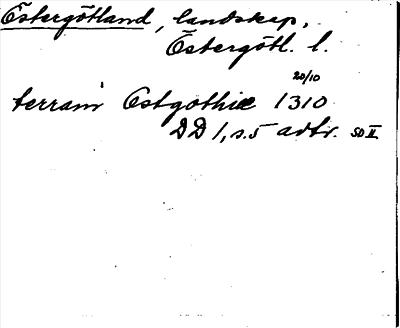 Östergötland, landskap,
Östergötl. l.
20/10
terram Ostgothie 1310
DD 1, s. 5 avtr. SD II